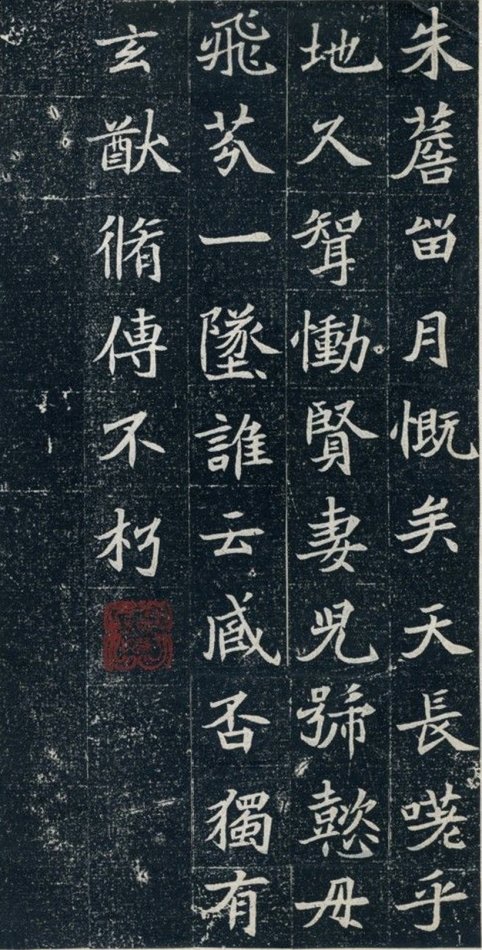 朱簷留月慨矣天長嗟乎
地久聟慟賢妻兒號懿母
飛芬一墜誰云臧否獨有
玄猷脩傳不朽